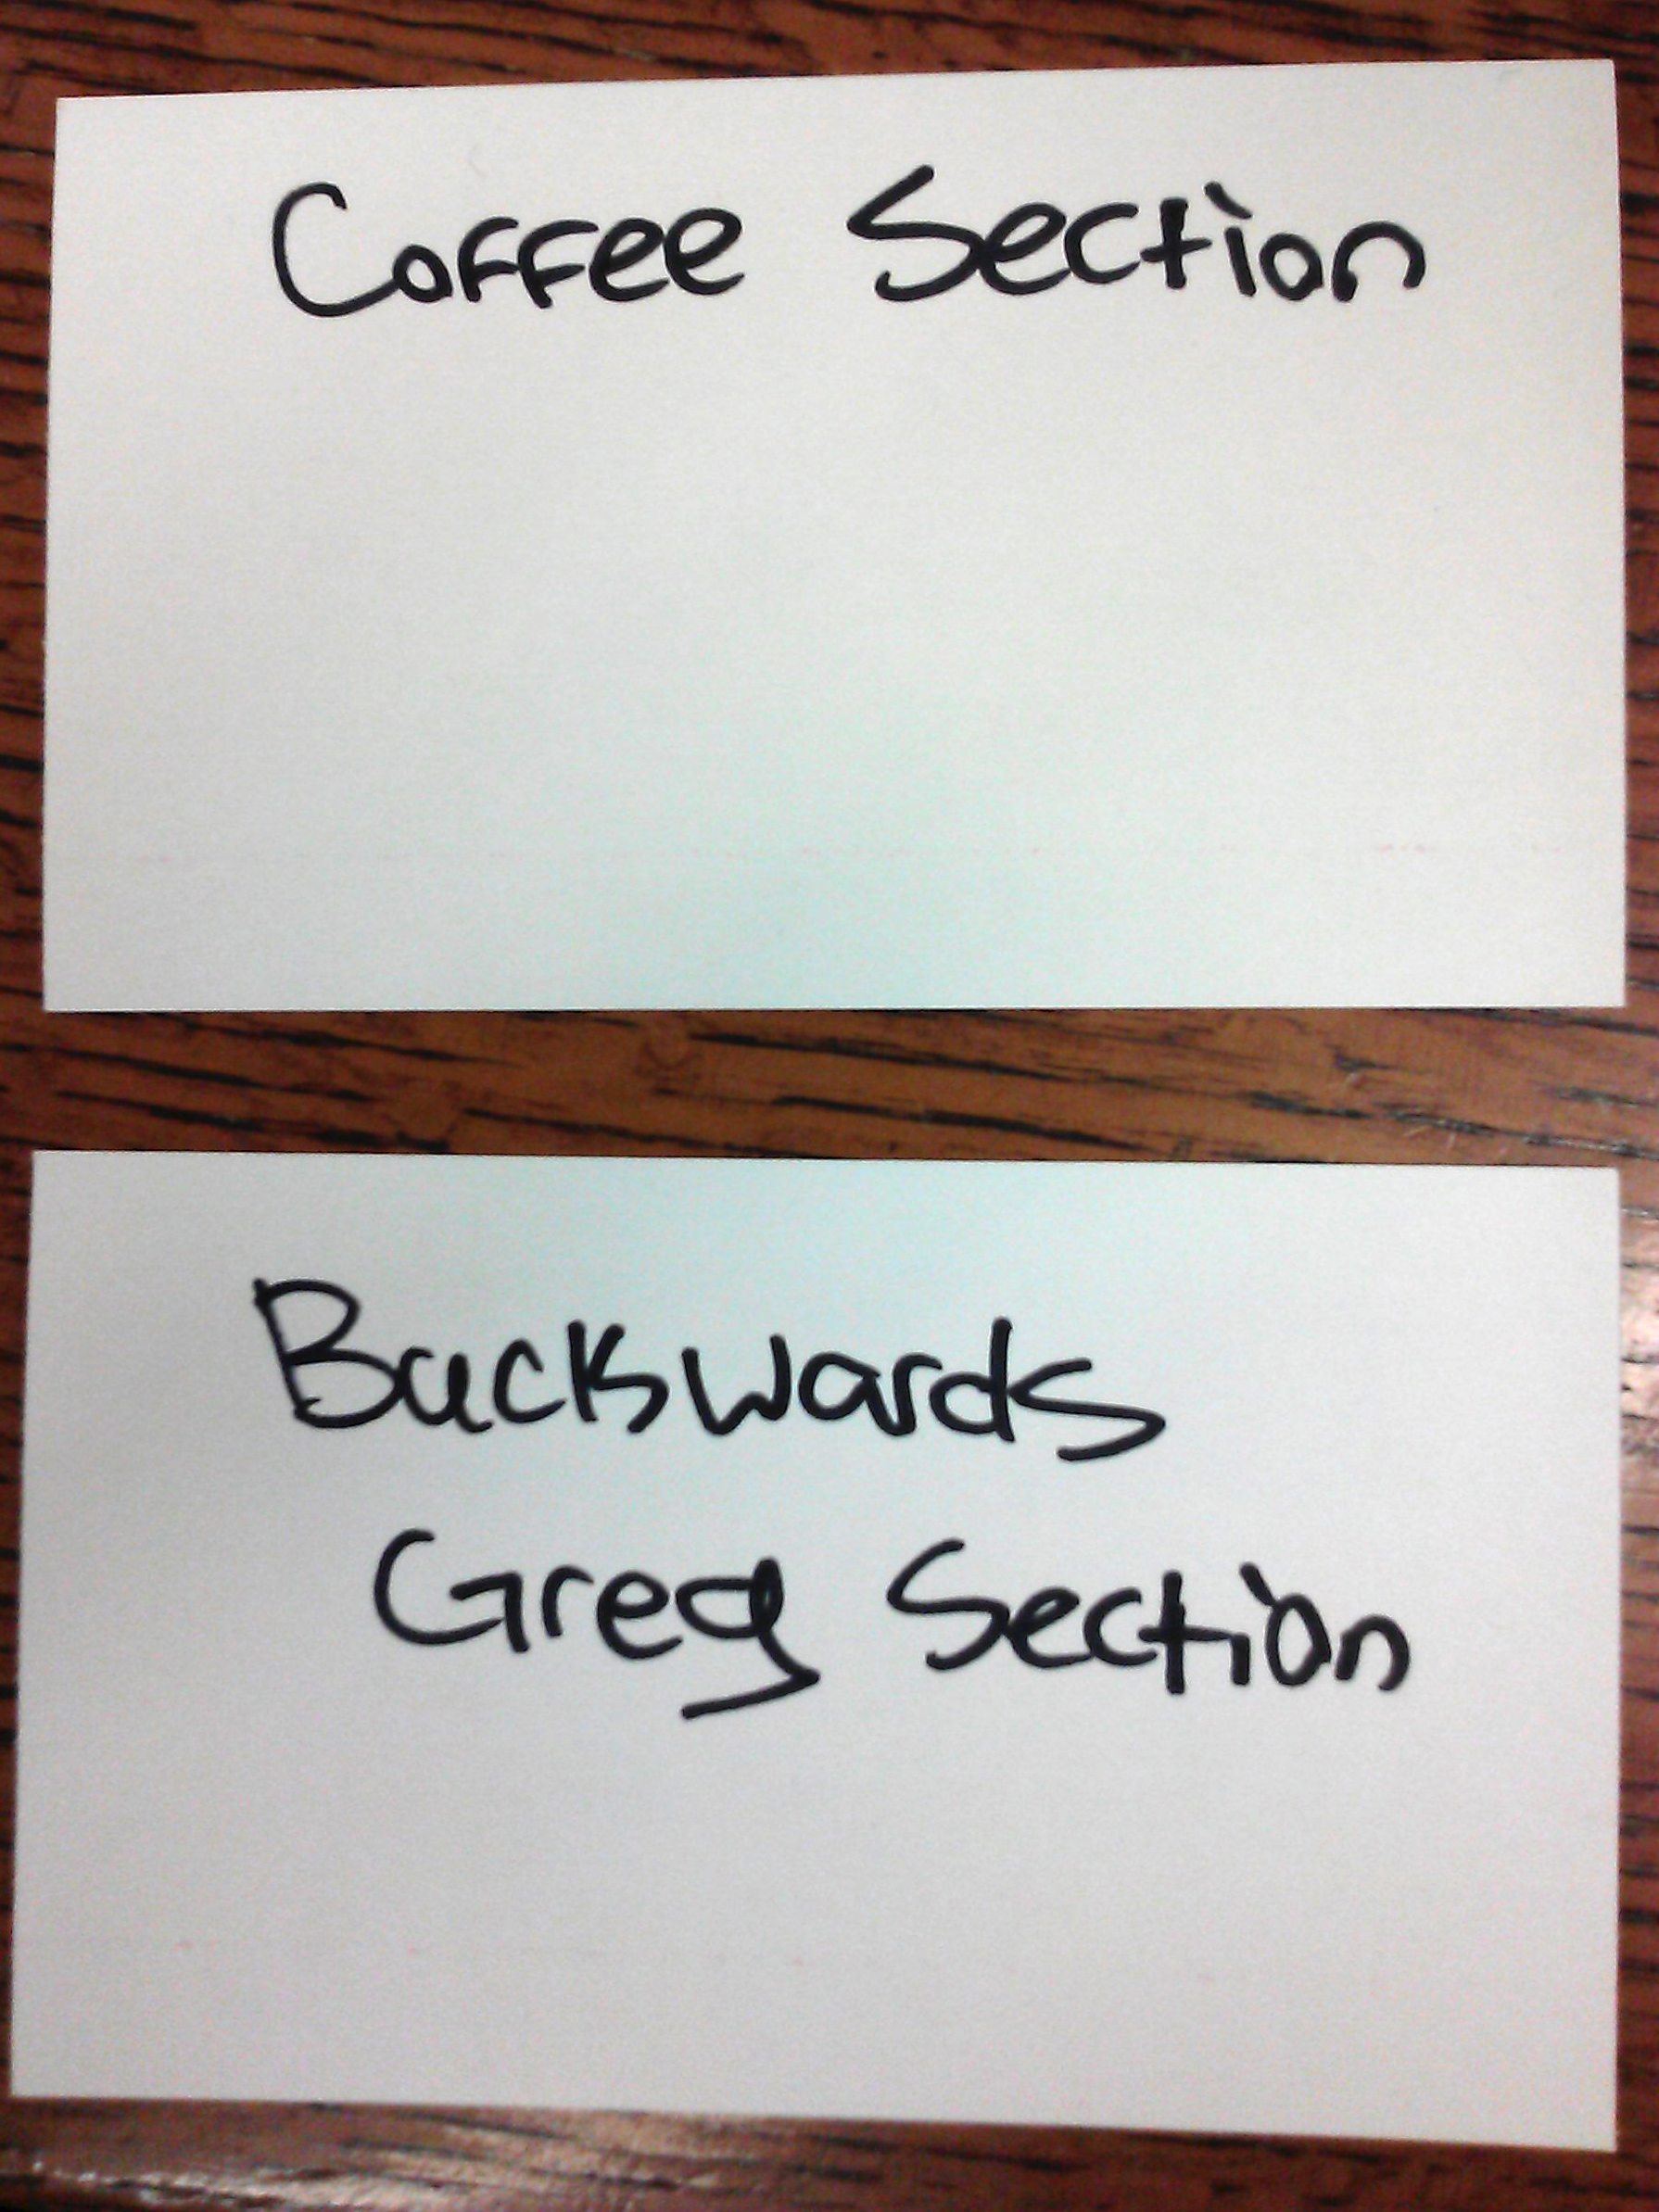 Coffee Section
Backwards
Greg Section